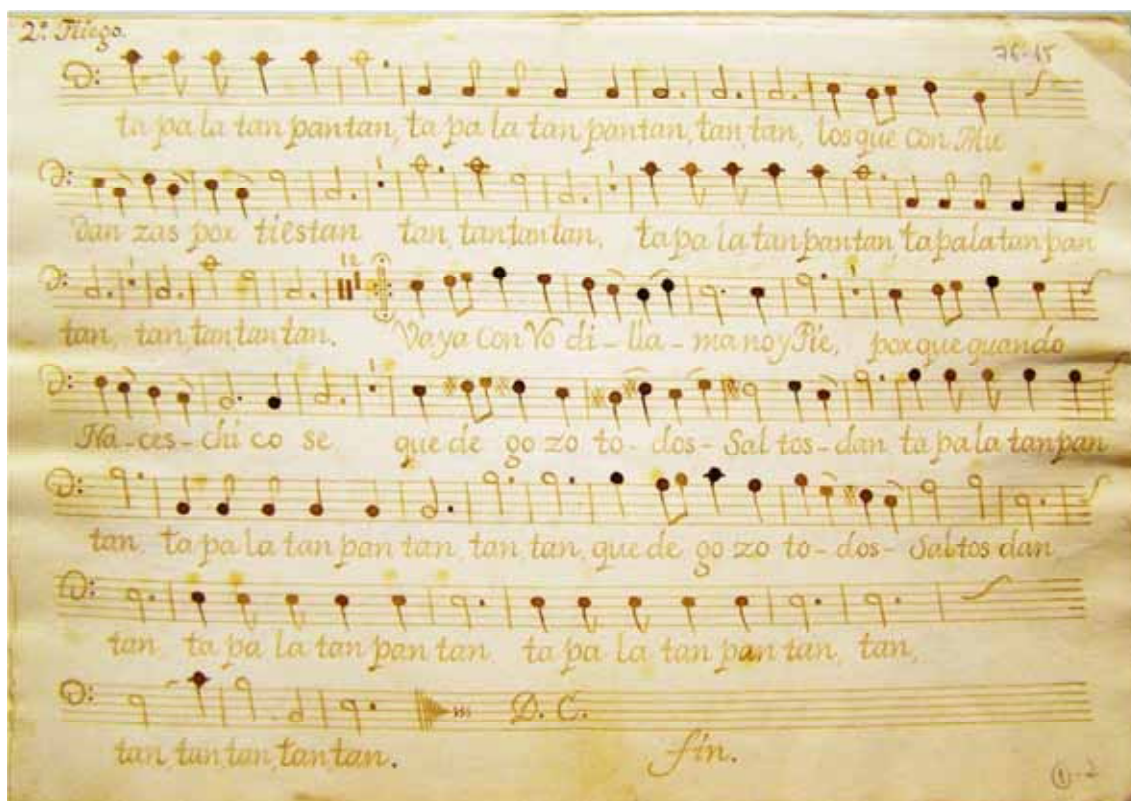 2.º Pliego.
76-15
ta pa la tan pan tan, ta pa la tan pan tan, tan, tan, los que con Mu
dan zas por ti estan tan, tan tan tan, ta pa la tan pan tan, ta pa la tan pan
12
tan, tan, tan, tan tan. Vaya con Yo di - lla - ma no y Pie, por que quando
Na - ces - chi co se que de go zo to - dos - Sal tos - dan ta pa la tan pan
tan, ta pa la tan pan tan tan tan, que de go zo to - dos - Sal tos dan
tan ta pa la tan pan tan, ta pa la tan pan tan, tan,
D. C.
tan, tan, tan, tan, tan. fin.
1-2